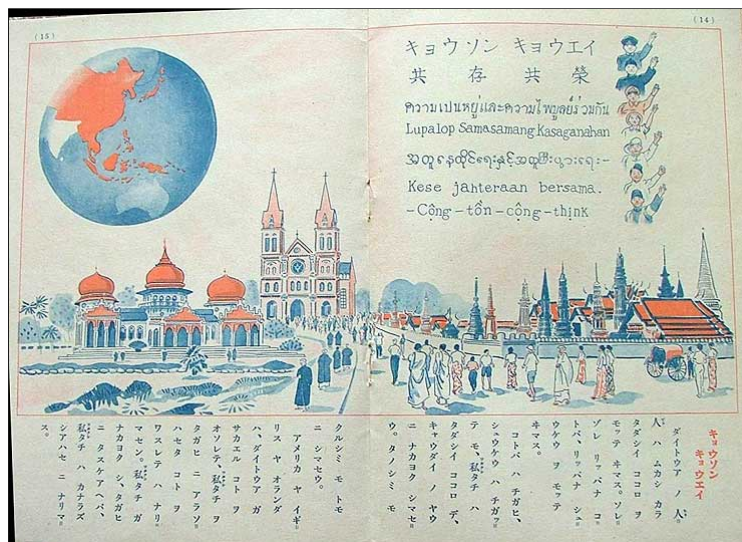 (14)
キョウソン キョウエイ
共存共榮
ความเปนหยู่และความไพบูลย์ร่วมกัน
Lupalop Samasamang Kasaganahan
အတူနေထိုင်ရေးနှင့်အတူစီးပွားရေး-
Kese jahteraan bersama.
-Cộng-tồn-cộng-thịnk
キョウソン
キョウエイ
ダイトウア ノ 人=
人 ハ ムカシ カラ
タダシイ ココロ ヲ
モッテ ヰマス。ソレ=
ゾレ リッパナ コ=
トバ、リッパナ シュ=
ウケウ ヲ モッテ
ヰマス。
コトバ ハ チガヒ、
シュウケウ ハ チガッ=
テ モ、私タチ ハ
タダシイ ココロ デ、
キャウダイ ノ ヤウ
ニ ナカヨク シマセ=
ウ。タノシミ モ
(15)
クルシミ モ トモ
ニ シマセウ。
アメリカ ヤ イギ=
リス ヤ オランダ
ハ、ダイトウア ガ
サカエル コト ヲ
オソレテ、私タチ ヲ
タガヒ ニ アラソ=
ハセタ コト ヲ
ワスレテ ハ ナリ=
マセン。私タチ ガ
ナカヨク シ、タガヒ
ニ タスケアヘバ、
私タチ ハ カナラズ
シアハセ ニ ナリマ=
ス。